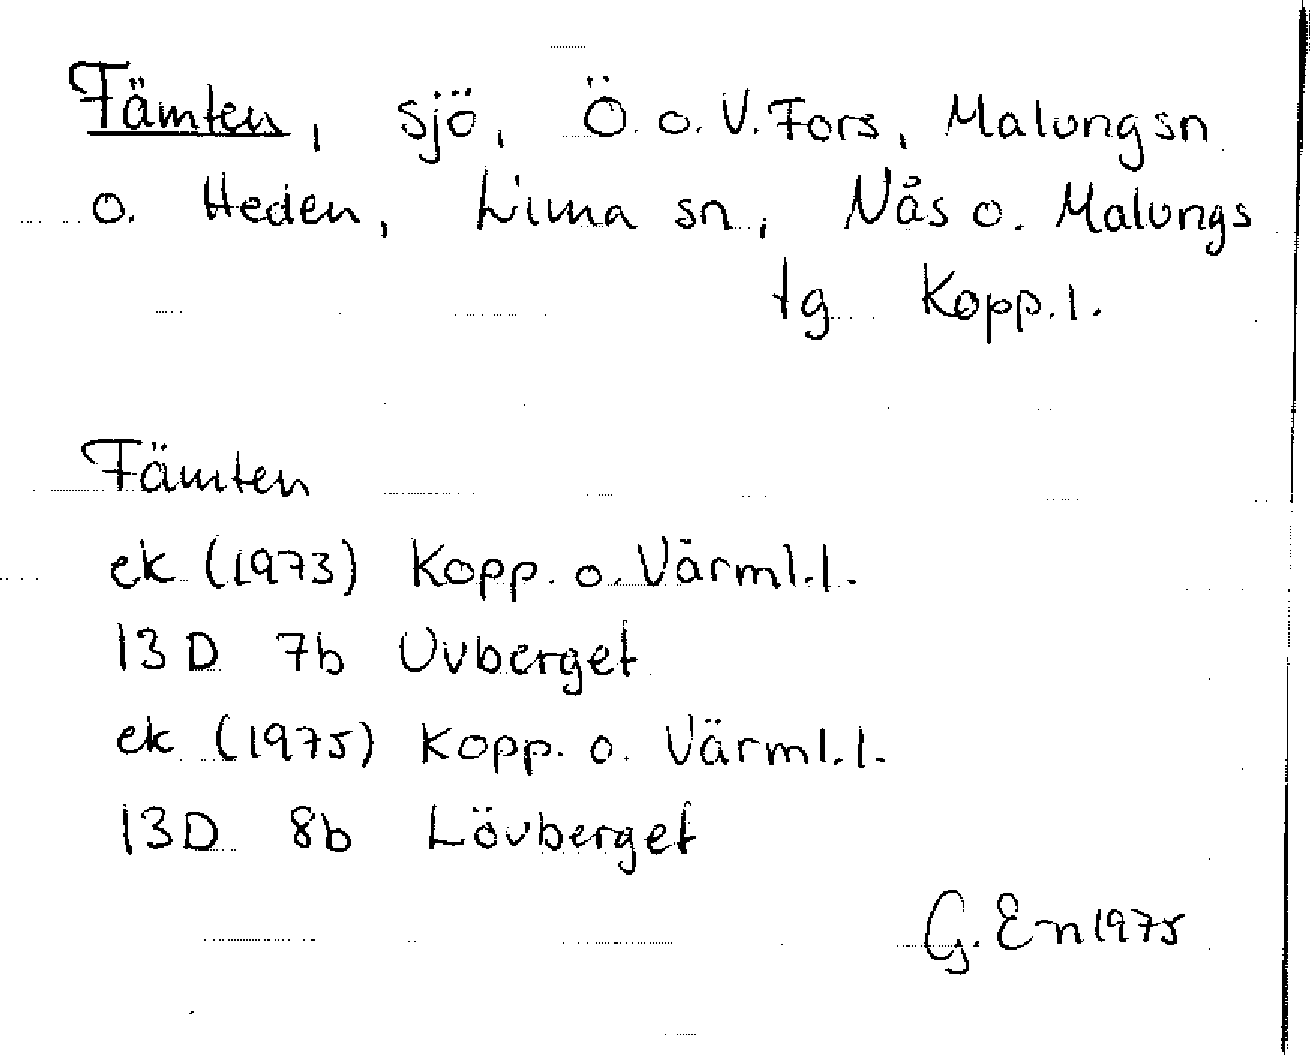 Fämten, sjö, Ö. o. V. Fors, Malung sn
o. Heden, Lima sn, Nås o. Malungs
tg Kopp. l.
Fämten
ek (1973) Kopp. o. Värml. l.
13D 7b Uvberget
ek (1975) Kopp. o. Värml. l.
13D 8b Lövberget
G. En 1975